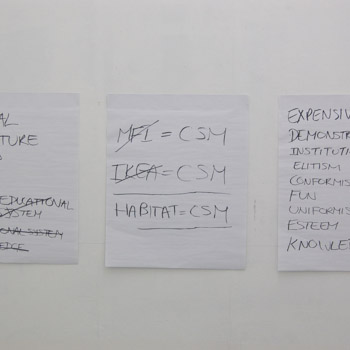 AL
TURE
EDUCATIONAL
SYSTEM
ONAL SYSTEM
EDGE
MFI = CSM
IKEA = CSM
HABITAT = CSM
EXPENSIV
DEMONSTR
INSTITUTI
ELITISM
CONFORMIS
FUN
UNIFORMIS
ESTEEM
KNOWLE